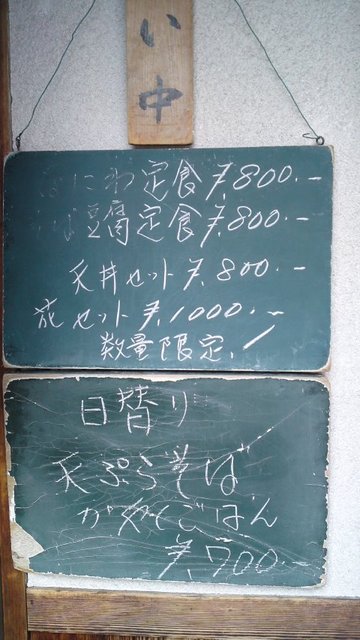 い中
にわ定食 ¥800.-
豆腐定食 ¥800.-
天丼セット ¥800.-
花セット ¥1000.-
数量限定!
日替り
天ぷらそば
かやくごはん
¥700-